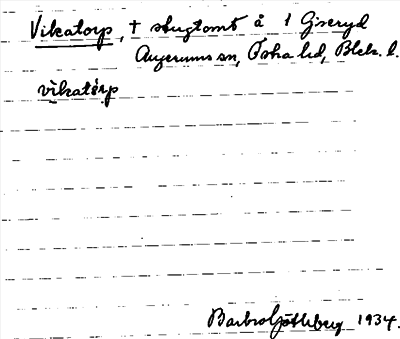 Vikatorp, + stugtomt å 1 Giseryd
Augerums sn, Östra hd, Blek. l.
vikatorp
Barbro Götheberg 1934.